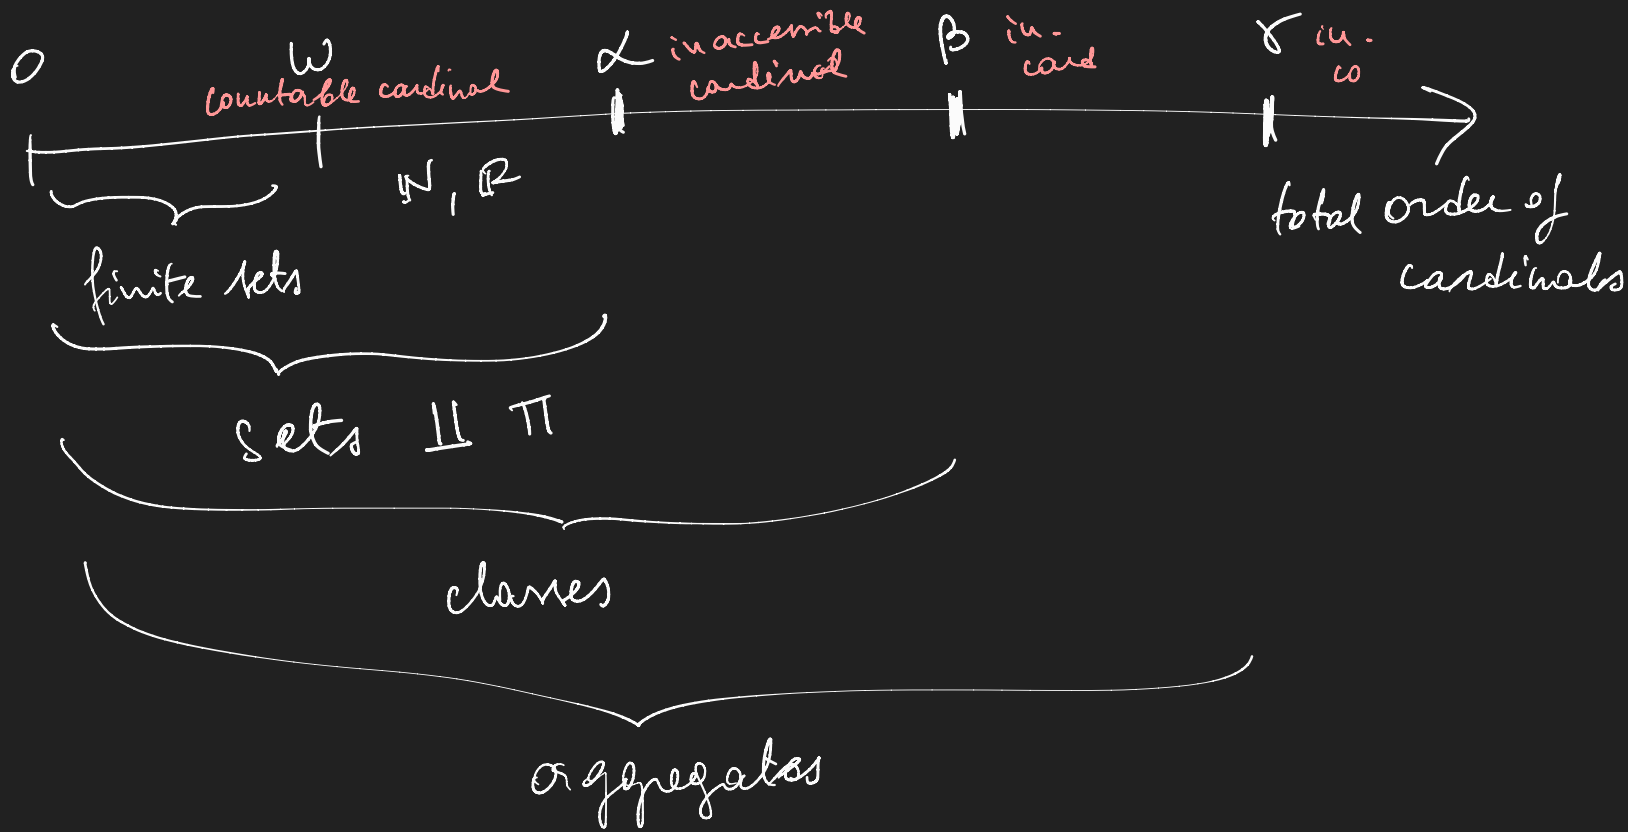 0
ω
countable cardinal
α inaccessible
cardinal
β in.
card
γ in.
co
ℕ, ℝ
total order of
cardinals
finite sets
sets ∐ ∏
classes
aggregates